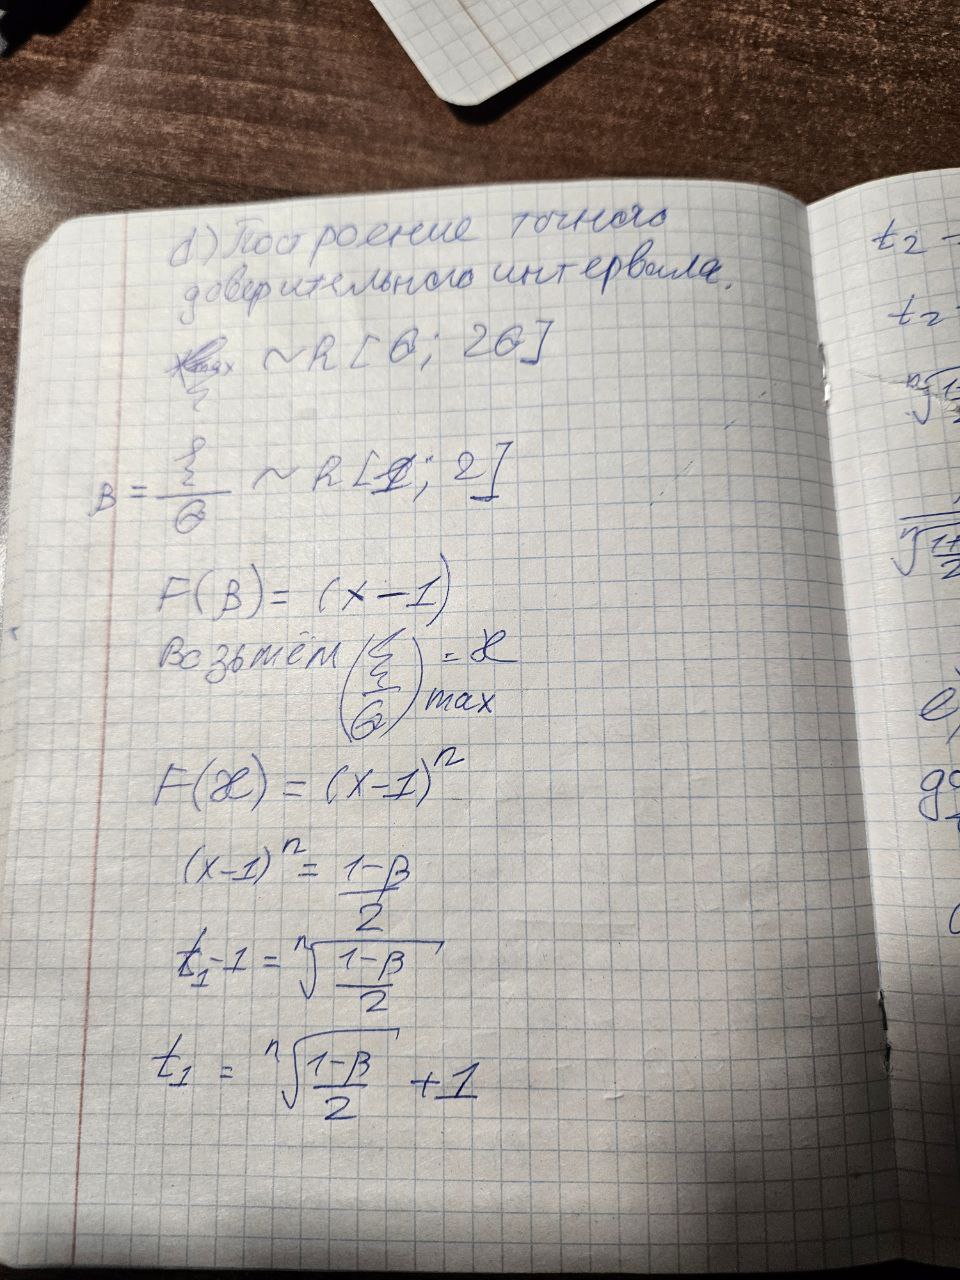 d) Построение точного
доверительного интервала.
ξ ~ R [θ; 2θ]
β = ξ/θ ~ R [1; 2]
F(β) = (x-1)
Возьмём (ξ/θ)max = æ
F(æ) = (x-1)^n
(x-1)^n = (1-β)/2
t₁-1 = ⁿ√((1-β)/2)
t₁ = ⁿ√((1-β)/2) + 1
t₂ -
t₂